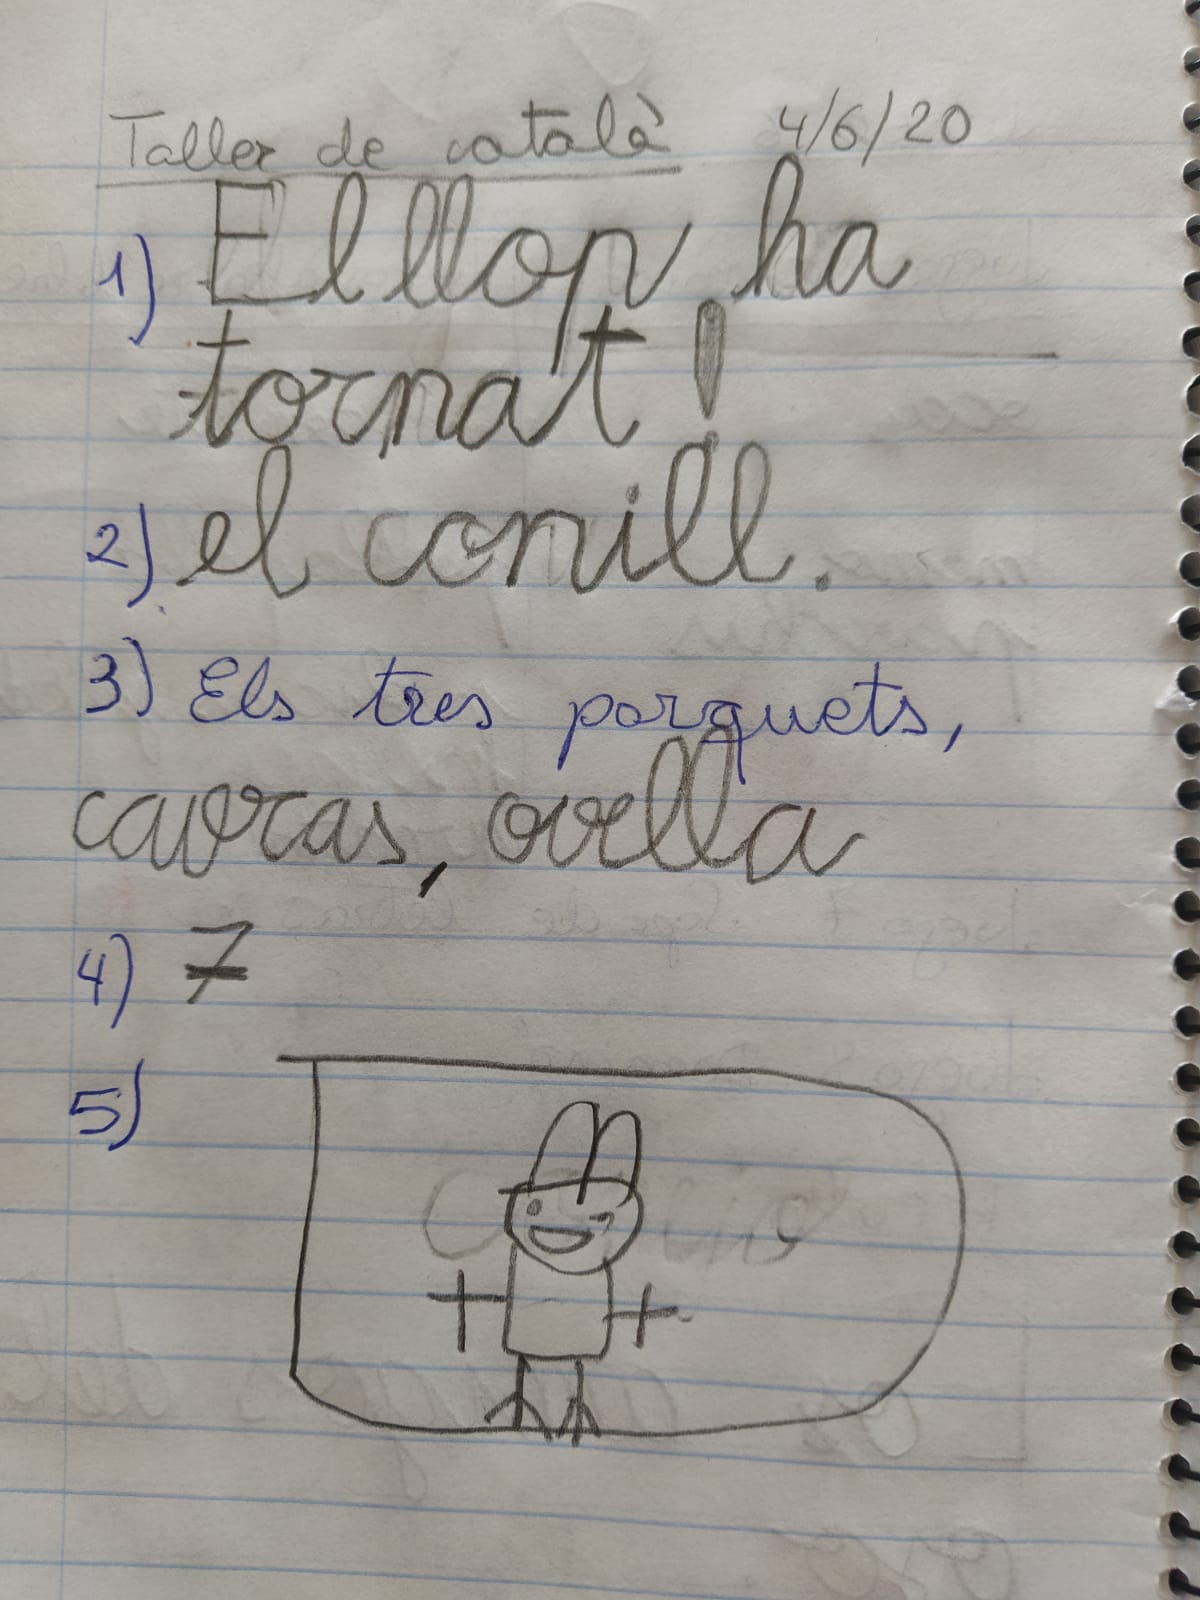 Taller de català 4/6/20
1) El llop ha
tornat!
2) el conill.
3) Els tres porquets,
cavras, ovella
4) 7
5)